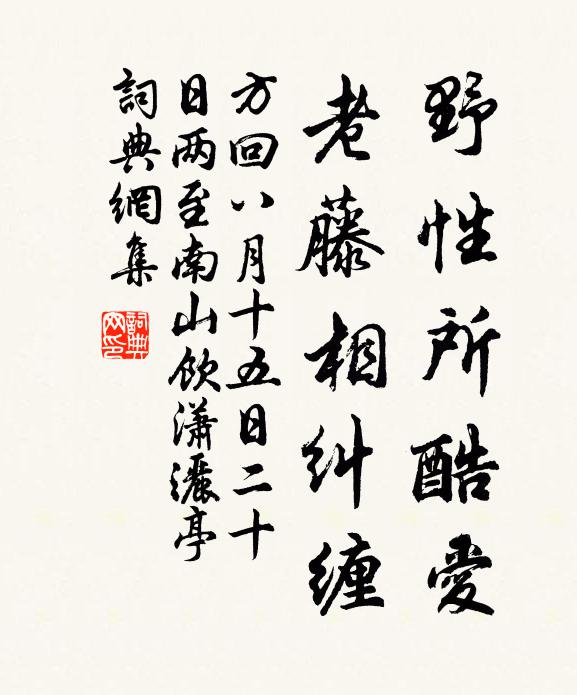 野性所酷愛
老藤相糾纏
方回八月十五日二十
日两至南山飲瀟灑亭
詞典網集
詞典网印